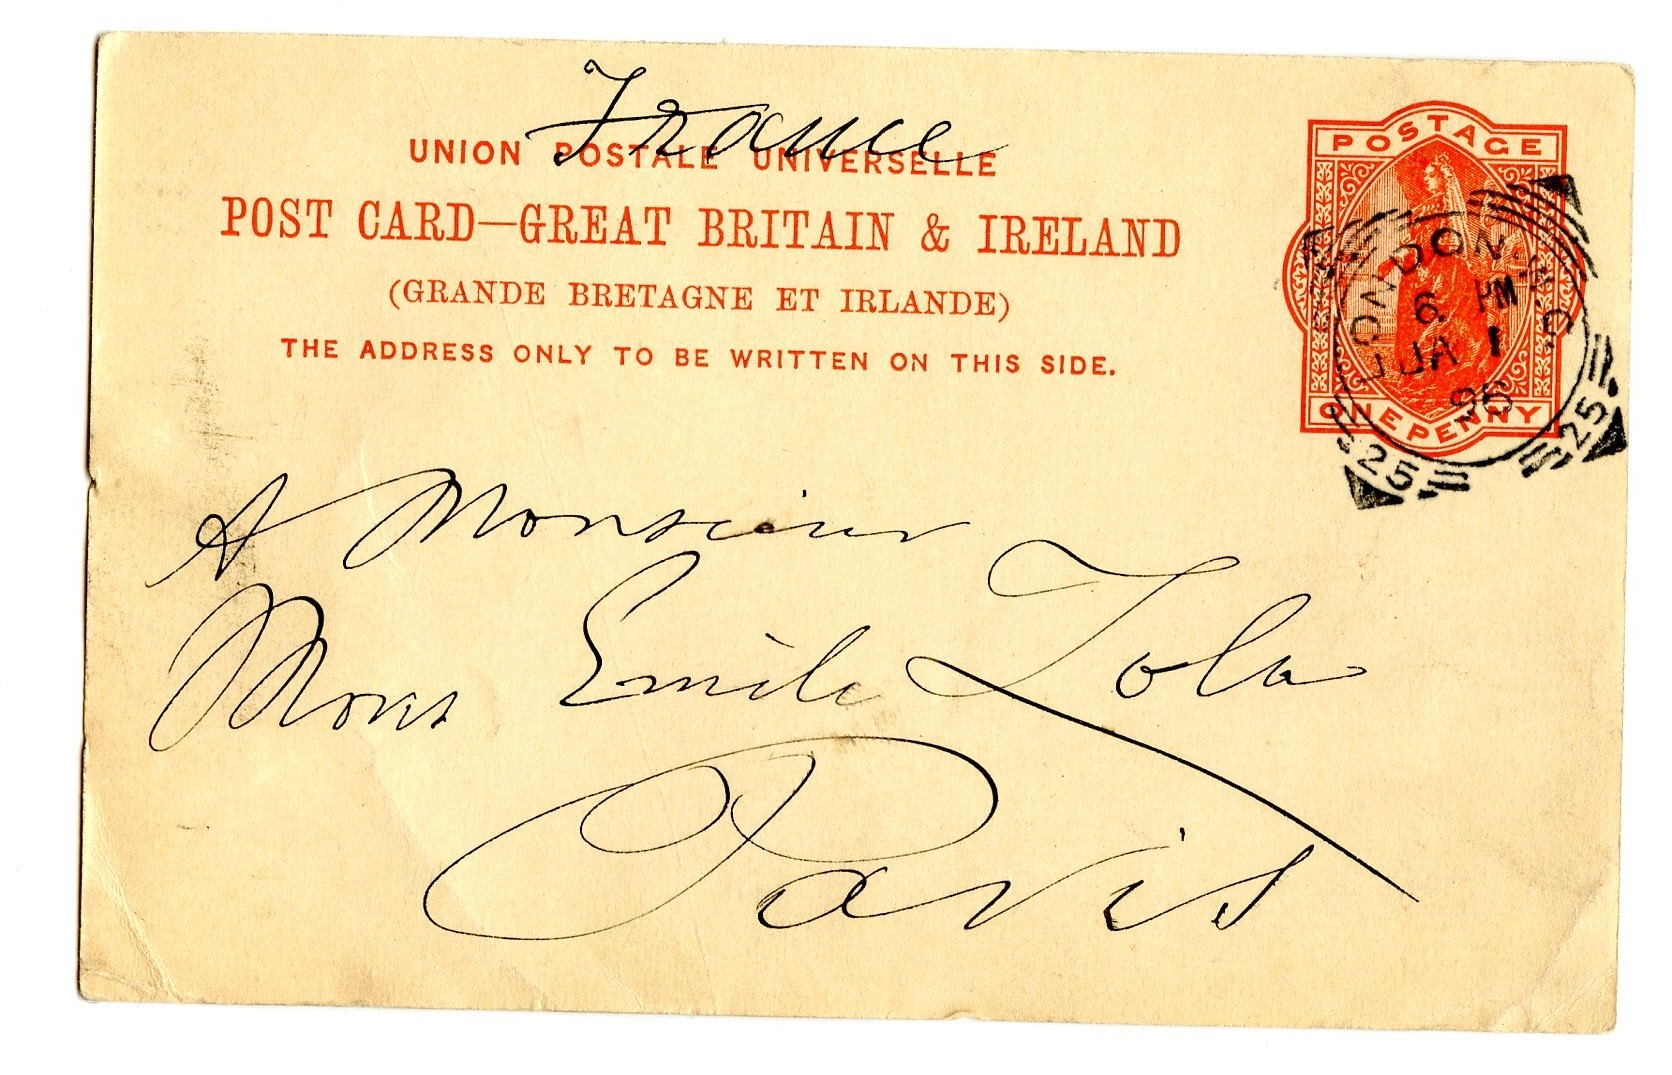 France
UNION POSTALE UNIVERSELLE
POST CARD—GREAT BRITAIN & IRELAND
(GRANDE BRETAGNE ET IRLANDE)
THE ADDRESS ONLY TO BE WRITTEN ON THIS SIDE.
POSTAGE
ONE PENNY
LONDON. W.C
6. PM
JA 1
96
25
25
A Monsieur
Mons Emile Zola
Paris